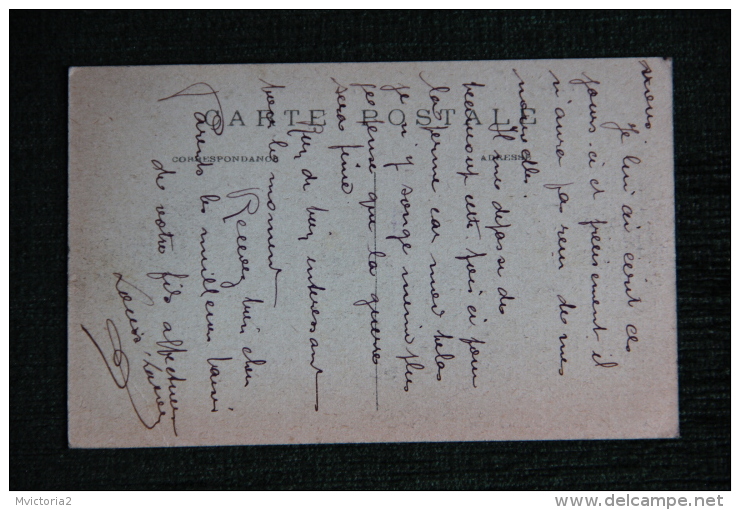 moins.
Je lui ai écrit ces
jours-ci et précisément il
n'aura pas reçu de mes
nouvelles.
Il me dépasse de
beaucoup cette fois ci pour
la ferme car moi hélas
je n'y songe même plus
je pense que la guerre
sera finie
Rien de bien intéressant
pour le moment
Recevez bien chers
Parents les meilleurs baisers
de votre fils affectueux
Louis
CARTE POSTALE
CORRESPONDANCE
ADRESSE
Mvictoria2
http://www.delcampe.net